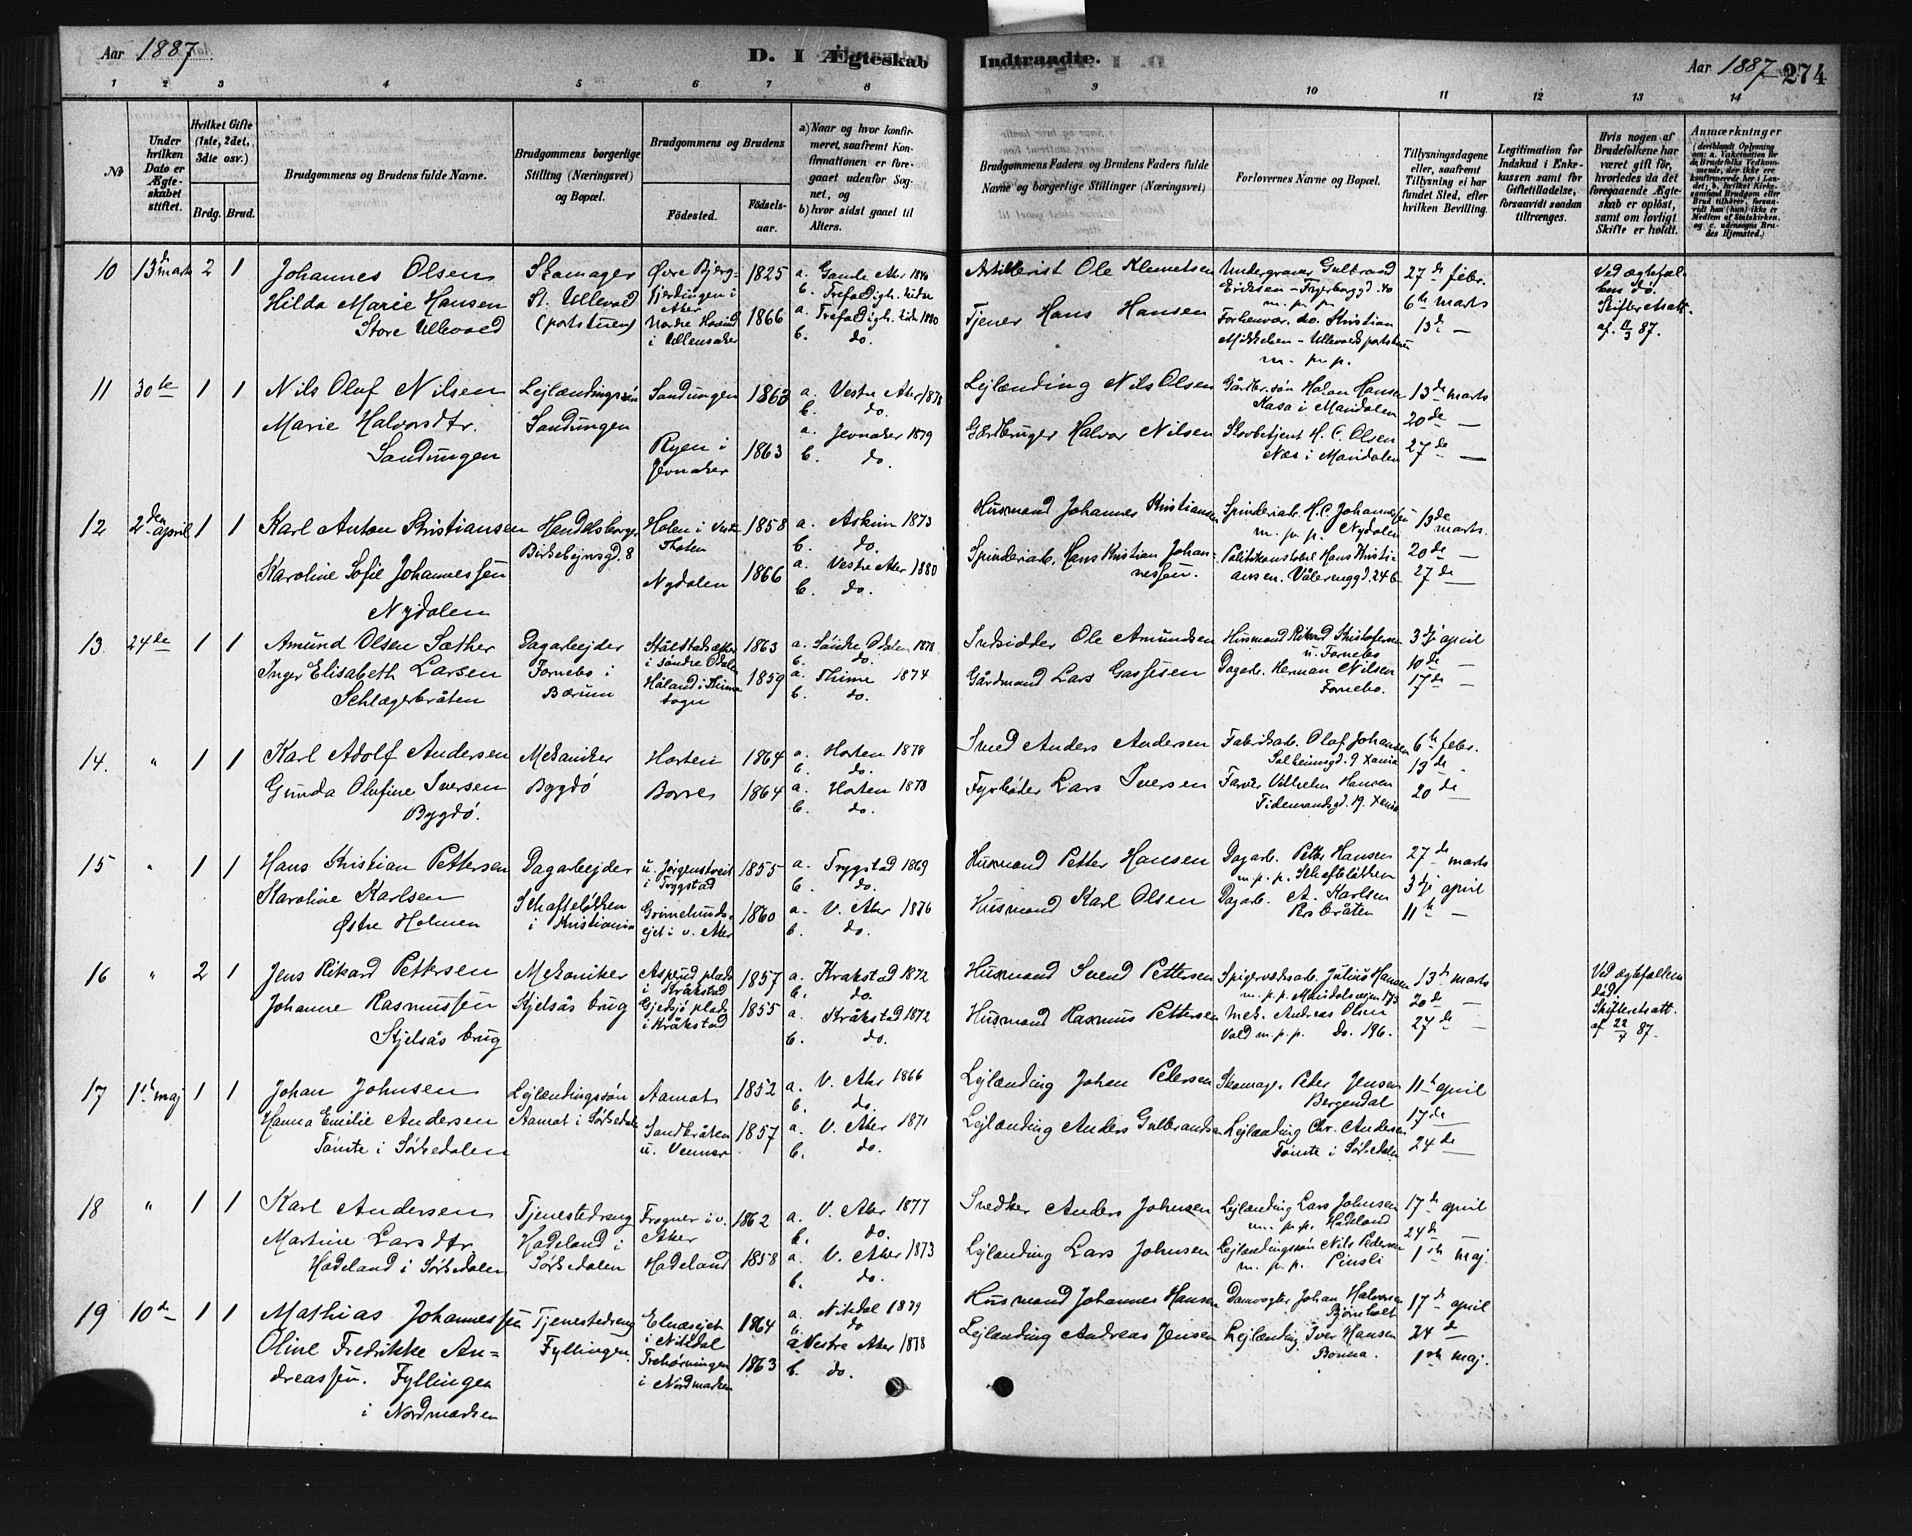 Aar 1887
D. I Ægteskab Indtraadte.
Aar 1887 274
1 2 3 4 5 6 7 8 9 10 11 12 13 14
No
Under hvilken Dato er Ægteskabet stiftet.
Hvilket Gifte (1ste, 2det, 3die osv.)
Brdg. Brud.
Brudgommens og Brudens fulde Navne.
Brudgommens borgerlige Stilling (Næringsvei) og Bopæl.
Brudgommens og Brudens
Fødested.
Fødselsaar.
a) Naar og hvor konfirmeret, saafremt Konfirmationen er foregaaet udenfor Sognet, og
b) hvor sidst gaaet til Alters.
Brudgommens Faders og Brudens Faders fulde Navne og borgerlige Stillinger (Næringsvei)
Forlovernes Navne og Bopæl.
Tillysningsdagene eller, saafremt Tillysning ei har fundet Sted, efter hvilken Bevilling.
Legitimation for Indskud i Enkekassen samt for Giftetilladelse, forsaavidt saadan tiltrænges.
Hvis nogen af Brudefolkene har været gift før, hvorledes da det foregaaende Ægteskab er opløst, samt om lovligt Skifte er holdt.
Anmærkninger
10 13de marts 2 1
Johannes Olsen
Hilda Marie Hansen
Store Ullevold
Skomager
St. Ullevold
(portstuen)
Øvre Bjerg-
i
Aker
Nordre
i Ullensaker
1825
1866
a. Gamle Aker
b. Trefoldigh. kirke
a. Trefoldigh. kirke 1880
b. do.
Artillerist Ole Klemetsen
Tjener Hans Hansen
Undergraver Gulbrand
Eriksen - do
m. p. p.
Forhenvær. do. Kristian
Mikkelsen - Ullevolds portstuen
m. p. p.
27de febr.
6te marts
13de —
Ved ægtefæl-
lens dö.
Skifteretsatt.
af. 11/3 87.
11 30te 1 1
Nils Olaf Nilsen
Marie Halvorsdtr.
Sandungen
Lejlændingsön
Sandungen
Sandungen
Ryen i
Jevnaker
1863
1863
a. Vestre Aker 1878
b. do.
a. Jevnaker 1879
b. do.
Lejlænding Nils Olsen
Gårdbruger Halvor Nilsen
Gårdbr. sön Hansen
Kasa i Maridalen
Skovbetjent H. C. Olsen
Næs i Maridalen
13de marts
20de —
27de —
12 2den april 1 1
Karl Anton Kristiansen
Karoline Sofie Johannessen
Nydalen
Handelsborger
Birkebejnsgd. 8
Holen i Vestre
Thoten
Nydalen
1858
1866
a. Askim 1873
b. do.
a. Vestre Aker 1880
b. do.
Husmand Johannes Kristiansen
Spinderiarb. Hans Kristian Johan-
nessen.
Spinderiarb. H. C. Johannessen
m. p. p. Nydalen
Politikonstabel Hans Kristi-
ansen. Vålerenggd. 24 b
13de marts.
20de —
27de —
13 24de 1 1
Amund Olsen Sæther
Inger Elisabeth Larsen
Schlagerbråten
Dagarbejder
Fornebo i
Bærum
i Söndre Odalen
Håland i Thime
sogn
1863
1859
a. Söndre Odalen 1878
b. do.
a. Thime 1874
b. do.
Indsidder Ole Amundsen
Gårdmand Lars Gassesen
Husmand Rikard Kristofersen
u. Fornebo
Dagarb. Herman Nilsen
Fornebo.
3dje april
10de —
17de —
14. " 1 1
Karl Adolf Andersen
Gunda Olufine Iversen
Bygdö.
Mekaniker
Bygdö
Horten
Borre
1864
1864
a. Horten 1878
b. do.
a. Horten 1878
b. do.
Smed Anders Andersen
Fyrböder Lars Iversen
Fabrikarb. Olaf Johansen
Solheimsgd. 9 Xania
Farver Vilhelm Hansen
Tidemandsgd. 19. Xania
6te febr.
13de —
20de —
15 " 1 1
Hans Kristian Pettersen
Karoline Karlsen
Østre Holmen
Dagarbejder
Schafteløkken
i Kristiania
u. Jørgenstveit
i Trygstad
Grimelunds-
ejet i v. Aker
1855
1860
a. Trygstad 1869
b. do.
a. V. Aker 1876
b. do.
Husmand Petter Hansen
Husmand Karl Olsen
Dagarb. Petter Hansen
m. p. p. Schafteløkken
Dagarb. A. Karlsen
Persbråten
27de marts
3dje april
11te —
16 " 2 1
Jens Rikard Pettersen
Johanne Rasmussen
Kjelsås brug
Mekaniker
Kjelsås brug
Asperud plads
i Kråkstad
Gjedsjø plads
i Kråkstad
1857
1855
a. Krakstad 1872
b. do.
a. Kråkstad 1872
b. do.
Husmand Svend Pettersen
Husmand Rasmus Pettersen
Spigerværksarb. Julius Hansen
m. p. p. Maridalsvejen 173
Mek. Andreas Olsen
Vold m. p. p. do. 196.
13de marts
20de —
27de —
Ved ægtefællens
död.
Skifteretsatt.
af 22/4 87.
17 1ste maj 1 1
Johan Johnsen
Hanna Emilie Andersen
Tömte i Sörkedalen
Lejlændingssön
Aamot i Sörkedalen
Aamot
Sandbråten
u. Venner
1852
1857
a. V. Aker 1866
b. do.
a. V. Aker 1871
b. do.
Lejlænding Johan Petersen
Lejlænding Anders Gulbrandsen
Skomager Peder Jensen
Bergendal
Lejlænding Chr. Andersen
Tömte i Sörkedalen
11te april
17de —
24de —
18 " 1 1
Karl Andersen
Martine Larsdtr.
Hadeland i Sörkedalen
Tjenestedreng
Hadeland i
Sörkedalen
Frogner i v.
Aker
Hadeland
1862
1858
a. V. Aker 1877
b. do.
a. V. Aker 1873
b. do.
Snedker Anders Johnsen
Lejlænding Lars Johnsen
Lejlænding Lars Johnsen
m. p. p. Hadeland
Lejlændingssön Nils Pedersen
m. p. p. Pinsli
17de april
24de —
1ste maj.
19 10de 1 1
Mathias Johannessen
Oline Fredrikke An-
dreassen. Fyllingen
i Nordmarken
Tjenestedreng
Fyllingen.
Elnæsejet
i Nitedal
Trehörningen
i Nordmarken
1864
1863
a. Nitedal 1879
b. do
a. Vestre Aker 1878
b. do.
Husmand Johannes Hansen
Lejlænding Andreas Jensen
Damvogter Johan Halvorsen
Björnholt
Lejlænding Iver Hansen
Bonna.
17de april
24de —
1ste maj.